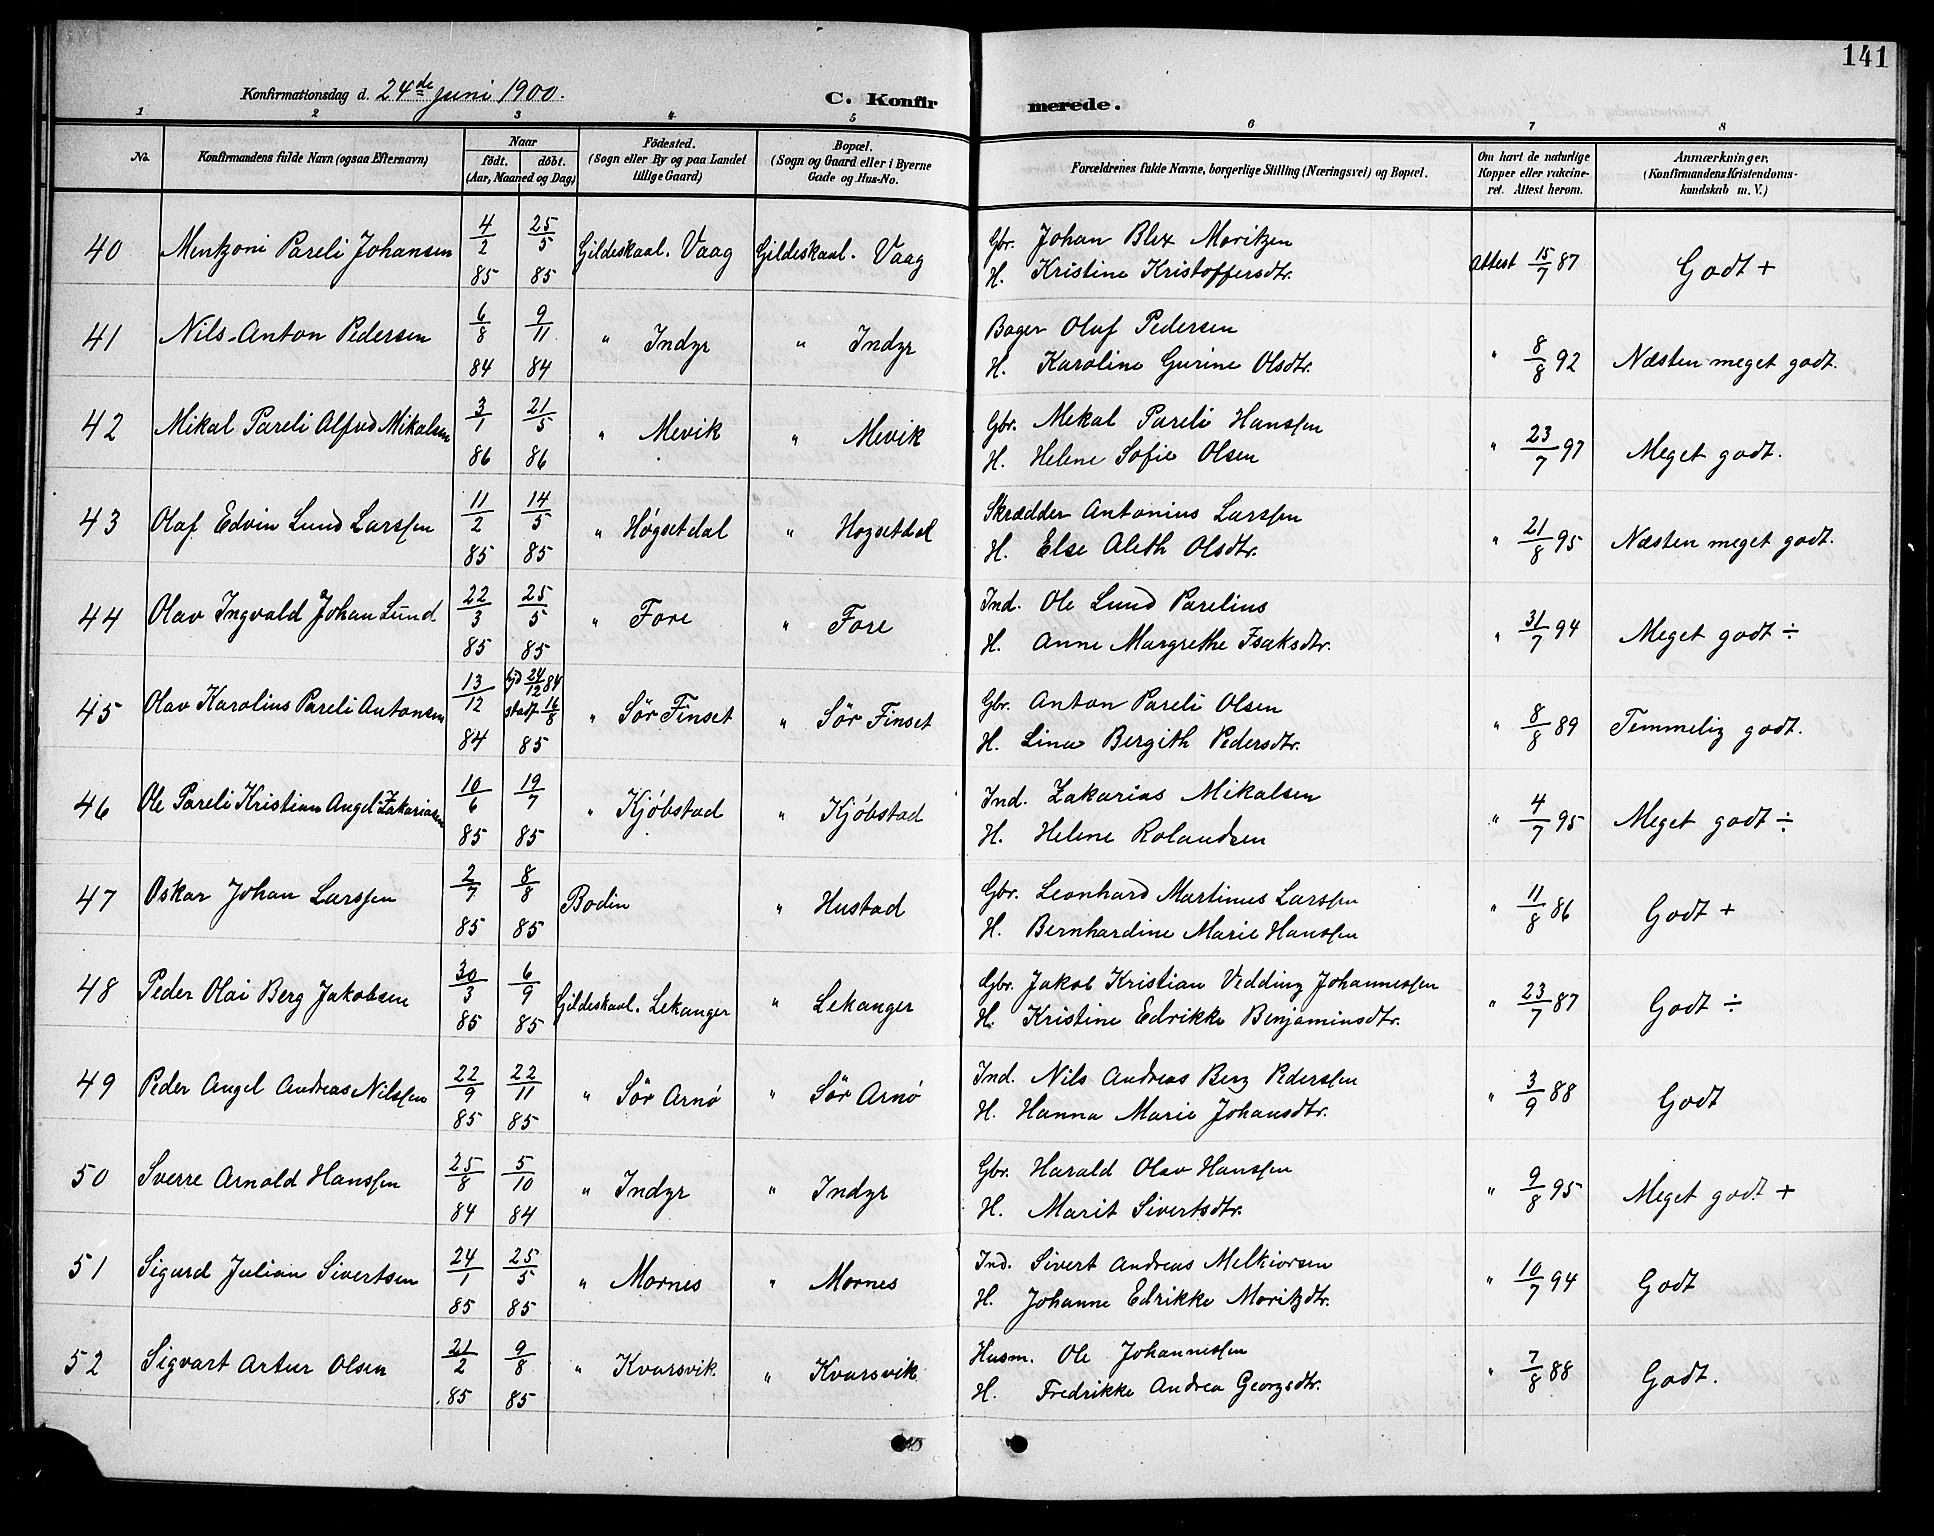 141
Konfirmationsdag d. 24de juni 1900.
C. Konfirmerede.
1 2 3 4 5 6 7 8
No. | Konfirmandens fulde Navn (ogsaa Efternavn) | Naar født. døbt. (Aar, Maaned og Dag) | Fødested. (Sogn eller By og paa Landet tillige Gaard) | Bopæl. (Sogn og Gaard eller i Byerne Gade og Hus-No. | Forældrenes fulde Navne, borgerlige Stilling (Næringsvei) og Bopæl. | Om havt de naturlige Kopper eller vaccineret. Attest herom. | Anmærkninger. (Konfirmandens Kristendomskundskab m. V.)
40 Mentzoni Pareli Johansen 4/2 85 25/5 85 Gildeskaal. Vaag Gildeskaal. Vaag Gbr. Johan Blix Moritzen Attest 15/7 87 Godt +
H. Kristine Kristoffersdtr.
41 Nils Anton Pedersen 6/8 84 9/11 84 " Indyr " Indyr Bager Olaf Pedersen " 8/8 92 Næsten meget godt.
H. Karoline Gurine Olsdtr.
42 Mikal Pareli Alfred Mikalsen 3/1 86 21/5 86 " Mevik " Mevik Gbr. Mekal Pareli Hanssen " 23/7 97 Meget godt.
H. Helene Sofie Olsen
43 Olaf Edvin Lund Larssen 11/2 85 14/5 85 " Høgsetdal " Hogsetdal Skrædder Antonius Larssen " 21/8 95 Næsten meget godt.
H. Else Aleth Olsdtr.
44 Olav Ingvald Johan Lund 22/3 85 25/5 85 " Fore " Fore Ind. Ole Lund Parelius " 31/7 94 Meget godt ÷
H. Anne Margrethe Isaksdtr.
45 Olav Karolius Pareli Antonsen 13/12 84 hjd 24/12 84 stadf. 16/8 85 " Sör Finset " Sör Finset Gbr. Anton Pareli Olsen " 8/8 89 Temmelig godt.
H. Lina Bergith Pedersdtr.
46 Ole Pareli Kristian Angel Zakariasen 10/6 85 19/7 85 " Kjøbstad " Kjøbstad Ind. Zakarias Mikalsen " 4/7 95 Meget godt ÷
H. Helene Rolandsen
47 Oskar Johan Larssen 2/7 85 8/8 85 Bodin " Hustad Gbr. Leonhard Martinus Larssen " 11/8 86 Godt +
H. Bernhardine Marie Hanssen
48 Peder Olai Berg Jakobsen 30/3 85 6/9 85 Gildeskaal. Lekanger " Lekanger Gbr. Jakob Kristian Vedding Johannessen " 23/7 87 Godt ÷
H. Kristine Edrikke Benjaminsdtr.
49 Peder Angel Andreas Nilssen 22/9 85 22/11 85 " Sör Arnø " Sör Arnø Ind. Nils Andreas Berg Pederssen " 3/9 88 Godt
H. Hanna Marie Johansdtr.
50 Sverre Arnold Hanssen 25/8 84 5/10 84 " Indyr " Indyr Gbr. Harald Olav Hanssen " 9/8 95 Meget godt +
H. Marit Sivertsdtr.
51 Sigurd Julian Sivertsen 24/1 85 25/5 85 " Mornes " Mornes Ind. Sivert Andreas Melkiorsen " 10/7 94 Godt
H. Johanne Edrikke Moritzdtr.
52 Sigvart Artur Olsen 21/2 85 9/8 85 " Kvarsvik " Kvarsvik Husm. Ole Johannessen " 7/8 88 Godt.
H. Fredrikke Andrea Georgsdtr.